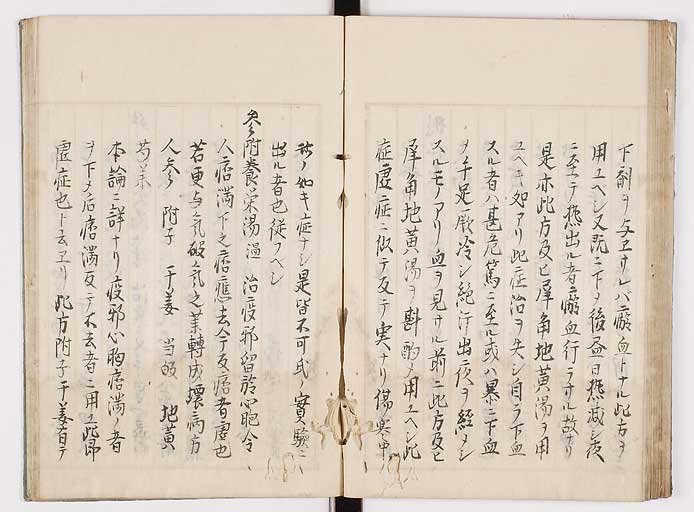 下剤ヲ与ヱサレバ瘀血トナル此方ヲ
用ユベシ又既ニ下メ後昼日熱減シ夜
ニ至テ熱出ル者ハ瘀血行ラサル故ナリ
是亦此方及ヒ犀角地黄湯ヲ用
ユヘキ如アリ此症治ヲ失シ自ラ下血
スル者ハ甚危篤ニ至ル或ハ暴ニ下血
ヲナ足厥冷シ絶汗出一夜ヲ経メシ
スルモノアリ血ヲ見サル前ニ此方及ヒ
犀角地黄湯ヲ斟酌メ用ユヘシ此
症虚症ニ似テ反テ実ナリ傷寒中ノ
如キ症ナシ是皆不可或ハ實験ニ
出ル者也従フベシ
参附養栄湯 治疫邪留於心胞令
人痞満下之痞應去今反痞者虚也
若更与気破気之薬轉成壊病方
人参 附子 干姜 当帰 地黄
芍薬
本論ニ詳ナリ疫邪心胸痞満ノ者
ヲ下メ后痞満反テ不去者ニ用ユ此即
虚症也ト云ヱリ此方附子干姜有テ